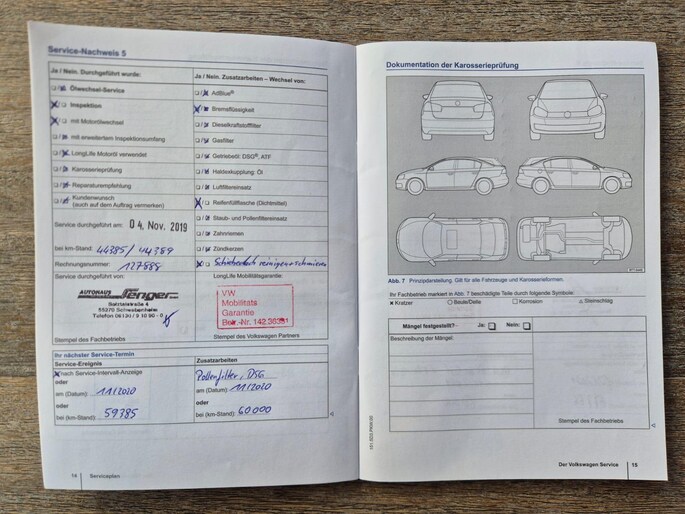 Service-Nachweis 5
Ja / Nein. Durchgeführt wurde:
Ölwechsel-Service
Inspektion
mit Motorölwechsel
mit erweitertem Inspektionsumfang
LongLife Motoröl verwendet
Karosserieprüfung
Reparaturempfehlung
Kundenwunsch
(auch auf dem Auftrag vermerken)
Service durchgeführt am: 04. Nov. 2019
bei km-Stand: 44385 / 44389
Rechnungsnummer: 127888
Service durchgeführt von:
AUTOHAUS
Senger
55270 Schwabenheim
Stempel des Fachbetriebs
Ja / Nein. Zusatzarbeiten – Wechsel von:
AdBlue®
Bremsflüssigkeit
Dieselkraftstofffilter
Gasfilter
Getriebeöl: DSG®, ATF
Haldexkupplung: Öl
Luftfiltereinsatz
Reifenfüllflasche (Dichtmittel)
Staub- und Pollenfiltereinsatz
Zahnriemen
Zündkerzen
Schiebedach reinigen + schmieren
LongLife Mobilitätsgarantie:
VW
Mobilitäts
Garantie
Stempel des Volkswagen Partners
Ihr nächster Service-Termin
Service-Ereignis
nach Service-Intervall-Anzeige
oder
am (Datum): 11/2020
oder
bei (km-Stand): 59385
Zusatzarbeiten
Pollenfilter, DSG
am (Datum): 11/2020
oder
bei (km-Stand): 60000
14 Serviceplan
Dokumentation der Karosserieprüfung
Abb. 7 Prinzipdarstellung. Gilt für alle Fahrzeuge und Karosserieformen.
Ihr Fachbetrieb markiert in Abb. 7 beschädigte Teile durch folgende Symbole:
× Kratzer ○ Beule/Delle □ Korrosion △ Steinschlag
Mängel festgestellt? - Ja: Nein:
Beschreibung der Mängel:
Stempel des Fachbetriebs
Der Volkswagen Service 15